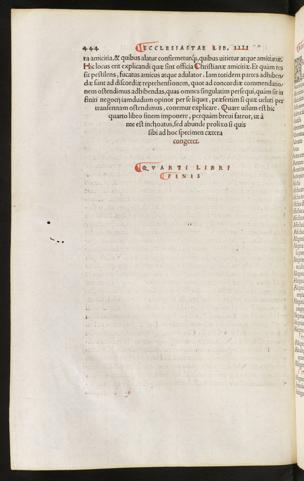 444 ECCLESIASTAE LIB. IIII
ra amicitia, & quibus alatur confirmeturq;, quibus uitietur atque amittatur.
Hic locus erit explicandi quæ sint officia Christianæ amicitiæ. Et quàm res
sit pestilens, fucatus amicus atque adulator. Iam totidem partes adhiben
dæ sunt ad discordiæ reprehensionem, quot ad concordiæ commendatio
nem ostendimus adhibendas, quas omnes singulatim persequi, quàm sit in
finiti negocij iamdudum opinor per se liquet, præsertim si quis uelut per
transennam ostendimus, conemur explicare. Quare uisum est hîc
quarto libro finem imponere, perquàm breui fateor, ut à
me est inchoatus, sed abunde prolixo si quis
sibi ad hoc specimen cætera
congeret.
QVARTI LIBRI
FINIS